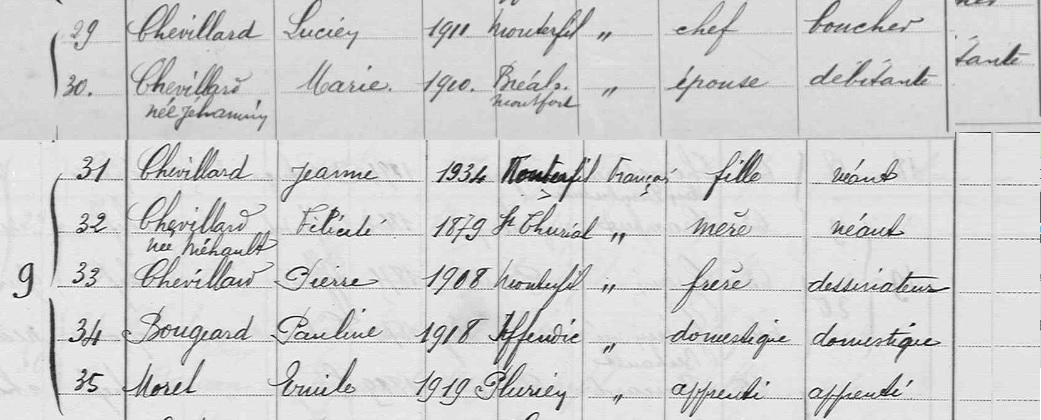 29 Chevillard Lucien 1911 Monterfil " chef boucher
tante
30. Chevillard Marie. 1910. Bréal s. " épouse débitante
née Jehannin montfort
31 Chevillard Jeanne 1934 Monterfil français fille néant
32 Chevillard Félicité 1879 St Thurial " mère néant
née Néhault
9 33 Chevillard Pierre 1908 Monterfil " frère dessinateur
34 Bougeard Pauline 1918 Iffendic " domestique domestique
35 Morel Emile 1919 " apprenti apprenti